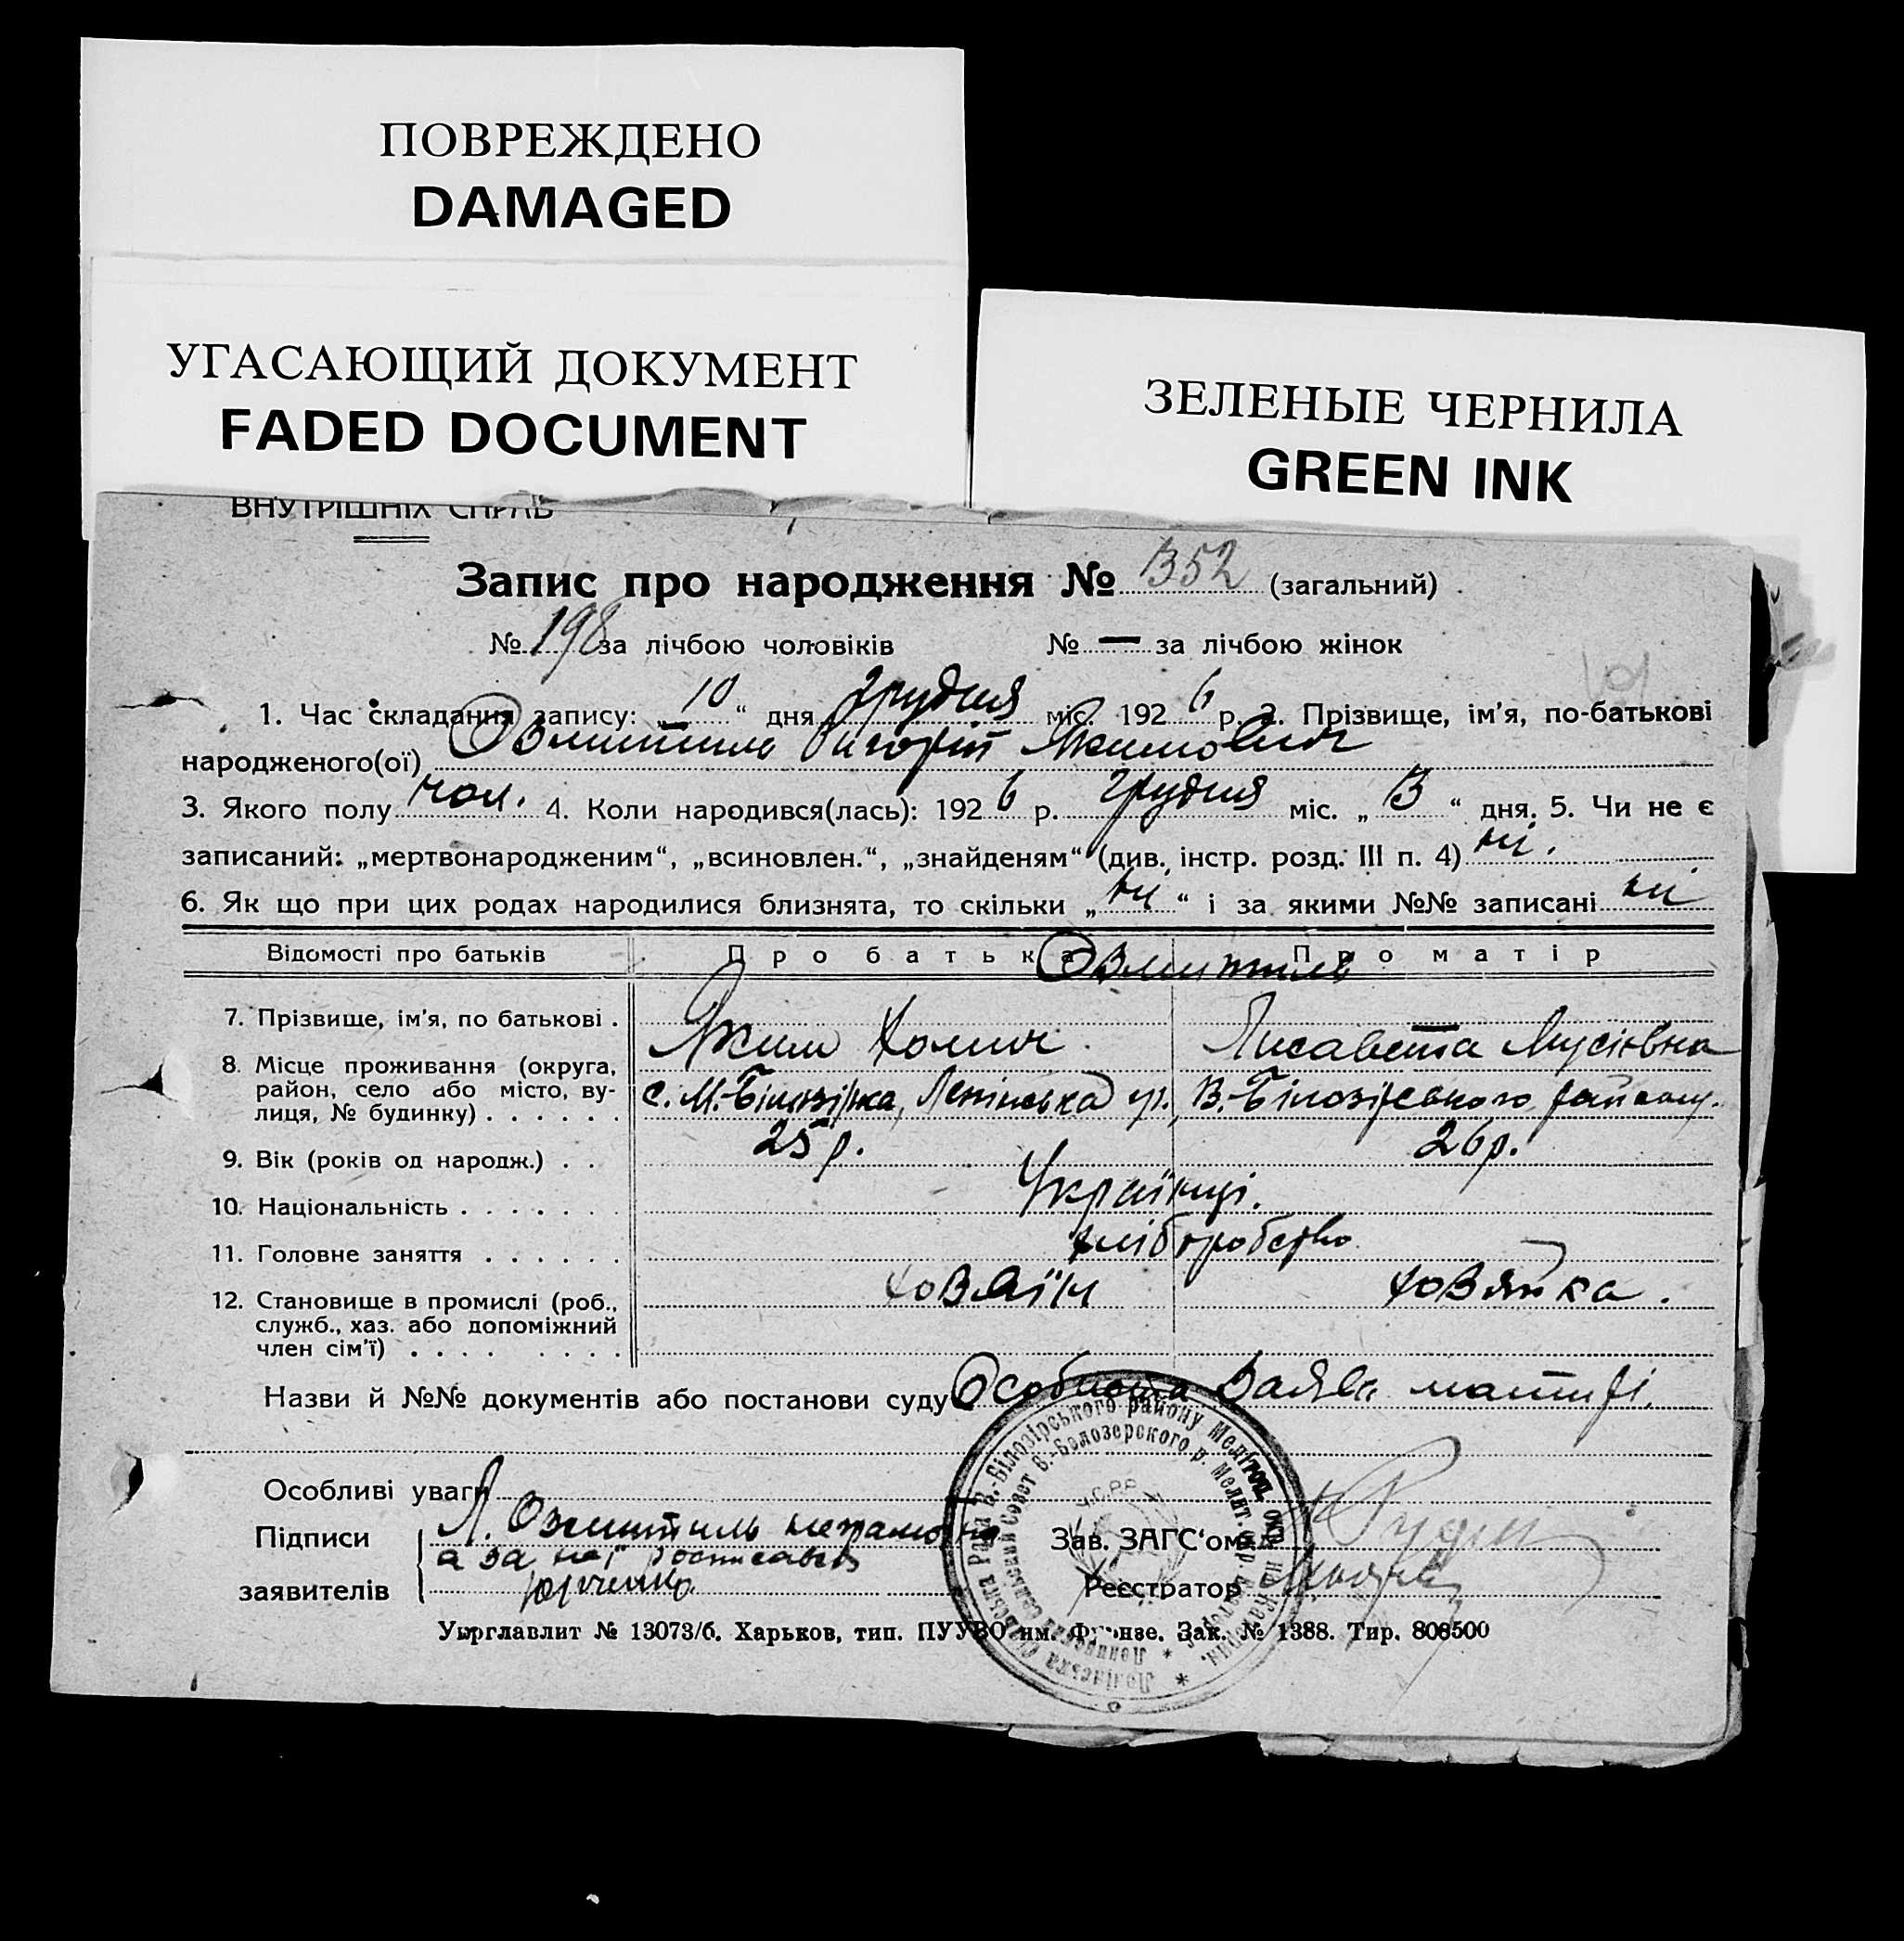 ПОВРЕЖДЕНО
DAMAGED
УГАСАЮЩИЙ ДОКУМЕНТ
FADED DOCUMENT
ЗЕЛЕНЫЕ ЧЕРНИЛА
GREEN INK
ВНУТРІШНІХ СПРАВ
Запис про народження № 352 (загальний)
№ 198 за лічбою чоловіків № — за лічбою жінок
1. Час складання запису: „ 10 “ дня грудня міс. 192 6 р. 2. Прізвище, ім'я, по-батькові
народженого(ої) Якимович
3. Якого полу чол. 4. Коли народився(лась): 192 6 р. грудня міс. „ “ дня. 5. Чи не є
записаний: „мертвонародженим“, „всиновлен.“, „знайденям“ (див. інстр. розд. III п. 4) ні.
6. Як що при цих родах народилися близнята, то скільки „ ні “ і за якими №№ записані ні
Відомості про батьків Про батька Про матір
7. Прізвище, ім'я, по батькові . Яким Хомич. Лисавета Мусіївна
8. Місце проживання (округа,
район, село або місто, ву-
лиця, № будинку) . . . . . . с. М.-Білозірка, Ленінська В.-Білозірського району.
9. Вік (років од народж.) . . 25 р. 26 р.
10. Національність . . . . . . . Українці.
11. Головне заняття . . . . . . хліборобство
12. Становище в промислі (роб., ховяїн ховяйка.
служб., хаз. або допоміжний
член сім'ї) . . . . . . . .
Назви й №№ документів або постанови суду Особиста Заява матирі.
Особливі уваги
Підписи Л. неграмотна
а за неї росписався
заявителів Юрченко
Зав. ЗАГС'ом
Реєстратор
В.-Білозірського району Мелітоп. окр. на Катерин.
У.С.Р.Р.
Укрглавлит № 13073/б. Харьков, тип. ПУУВО им. Фрунзе. Зак. № 1388. Тир. 808500